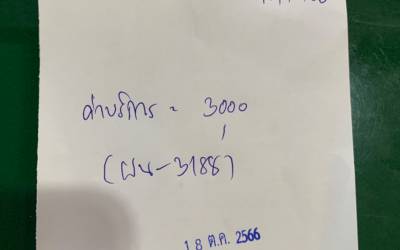 ค่าบริการ = 3000
(ผน-3188)
18 ต.ค. 2566